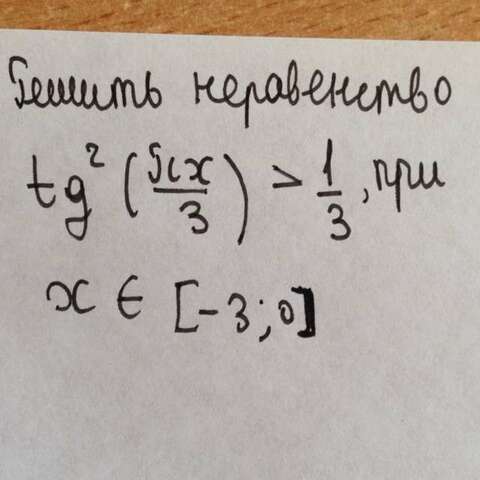 Решить неравенство
tg² (πx/3) > 1/3, при
x ∈ [-3;0]